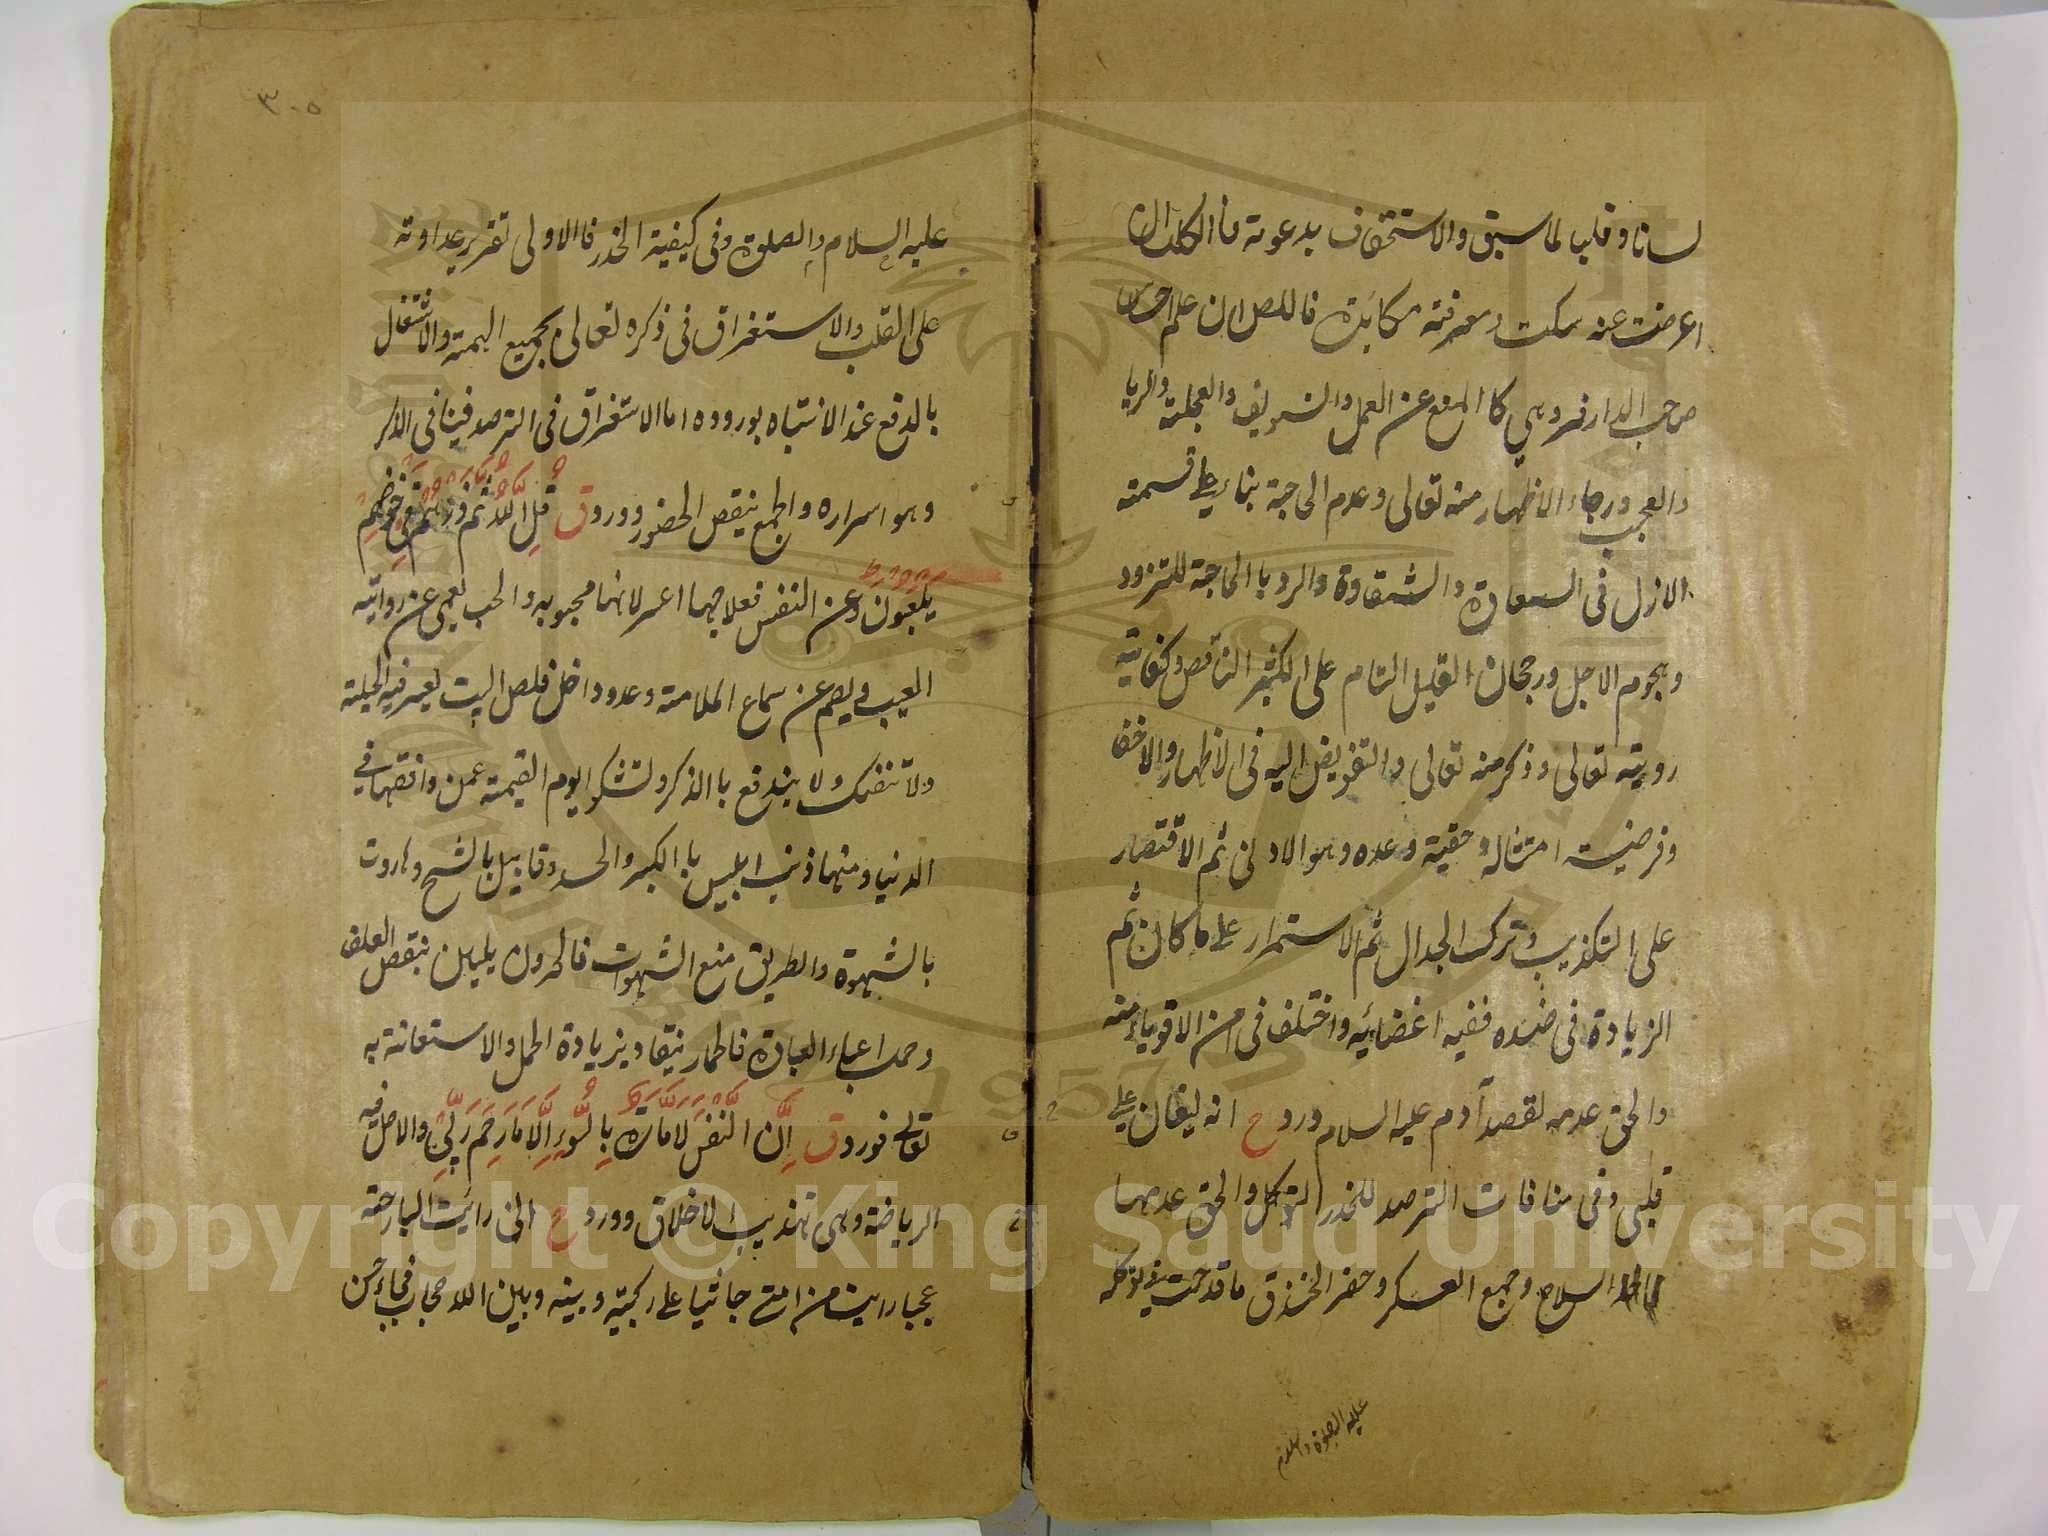 لسانا وقلبا لما سبق والاستخفاف بدعوته فالكلب ان
اعرضت عنه سكت ومعرفته مكايده فاللص ان علم احس
صاحب الدار فر وهي كالمنع عن العمل والتسويف والعجلة والريا
والعجب ورجاء الاظهار منه تعالى وعدم الحاجة بناء على قسمته
الازل في السعادة والشقاوة والرد بالحاجة للتزود
وهجوم الاجل ورجحان القليل التام على الكثير الناقص وكفاية
رويته تعالى وذكر منه تعالى والتفويض اليه في الاظهار والاخفا
وفرضية امتثاله وحقية وعده وهو الاولى ثم الاقتصار
على التكذيب وترك الجدال ثم الاستمرار على ما كان ثم
الزيادة في ضده ففيه اغضائه واختلف في من الاقوياء منه
والحق عدمه لقصة آدم عليه السلام ورود ح انه ليغان على
قلبي وفي منافات الترصد للحذر التوكل والحق عدمها
السلاح وجمع العسكر وحفر الخندق ما قدحت في توكله
عليه الصلوة والسلام
٣٠٥
عليه السلام والصلوة وفي كيفية الحذر فالاولى تقرير عداوته
على القلب والاستغراق في ذكره تعالى بجميع الهمة والاشتغال
بالدفع عند الانتباه بوروده اما الاستغراق في الترصد فينافي الذكر
وهو اسراره والجمع ينقص الحضور وورود ق قل الله ثم ذرهم في خوضهم
يلعبون وعن النفس فعلاجها اعسر لانها محبوبه والحب يعمي عن روايته
العيب ويصم عن سماع الملامة وعدو داخل فلص البيت يعسر فيه الحيلة
ولا تنفك ولا يندفع بالذكر وتشكو يوم القيمة عمن وافقها في
الدنيا ومنها ذنب ابليس بالكبر والحسد وقابيل بالشح وهاروت
بالشهوة والطريق منع الشهوات فالحرون يلين بنقص العلف
وحمل اعباء العبادة فالحمار ينقاد بزيادة الحمل والاستعانة به
تعالى فورود ق ان النفس لامارة بالسوء الا ما رحم ربي والاصل فيه
الرياضة وهي تهذيب الاخلاق وورود ح اني رايت البارحة
عجبا رايت من امتي جاثيا على ركبتيه وبينه وبين الله حجاب فجاء حسن